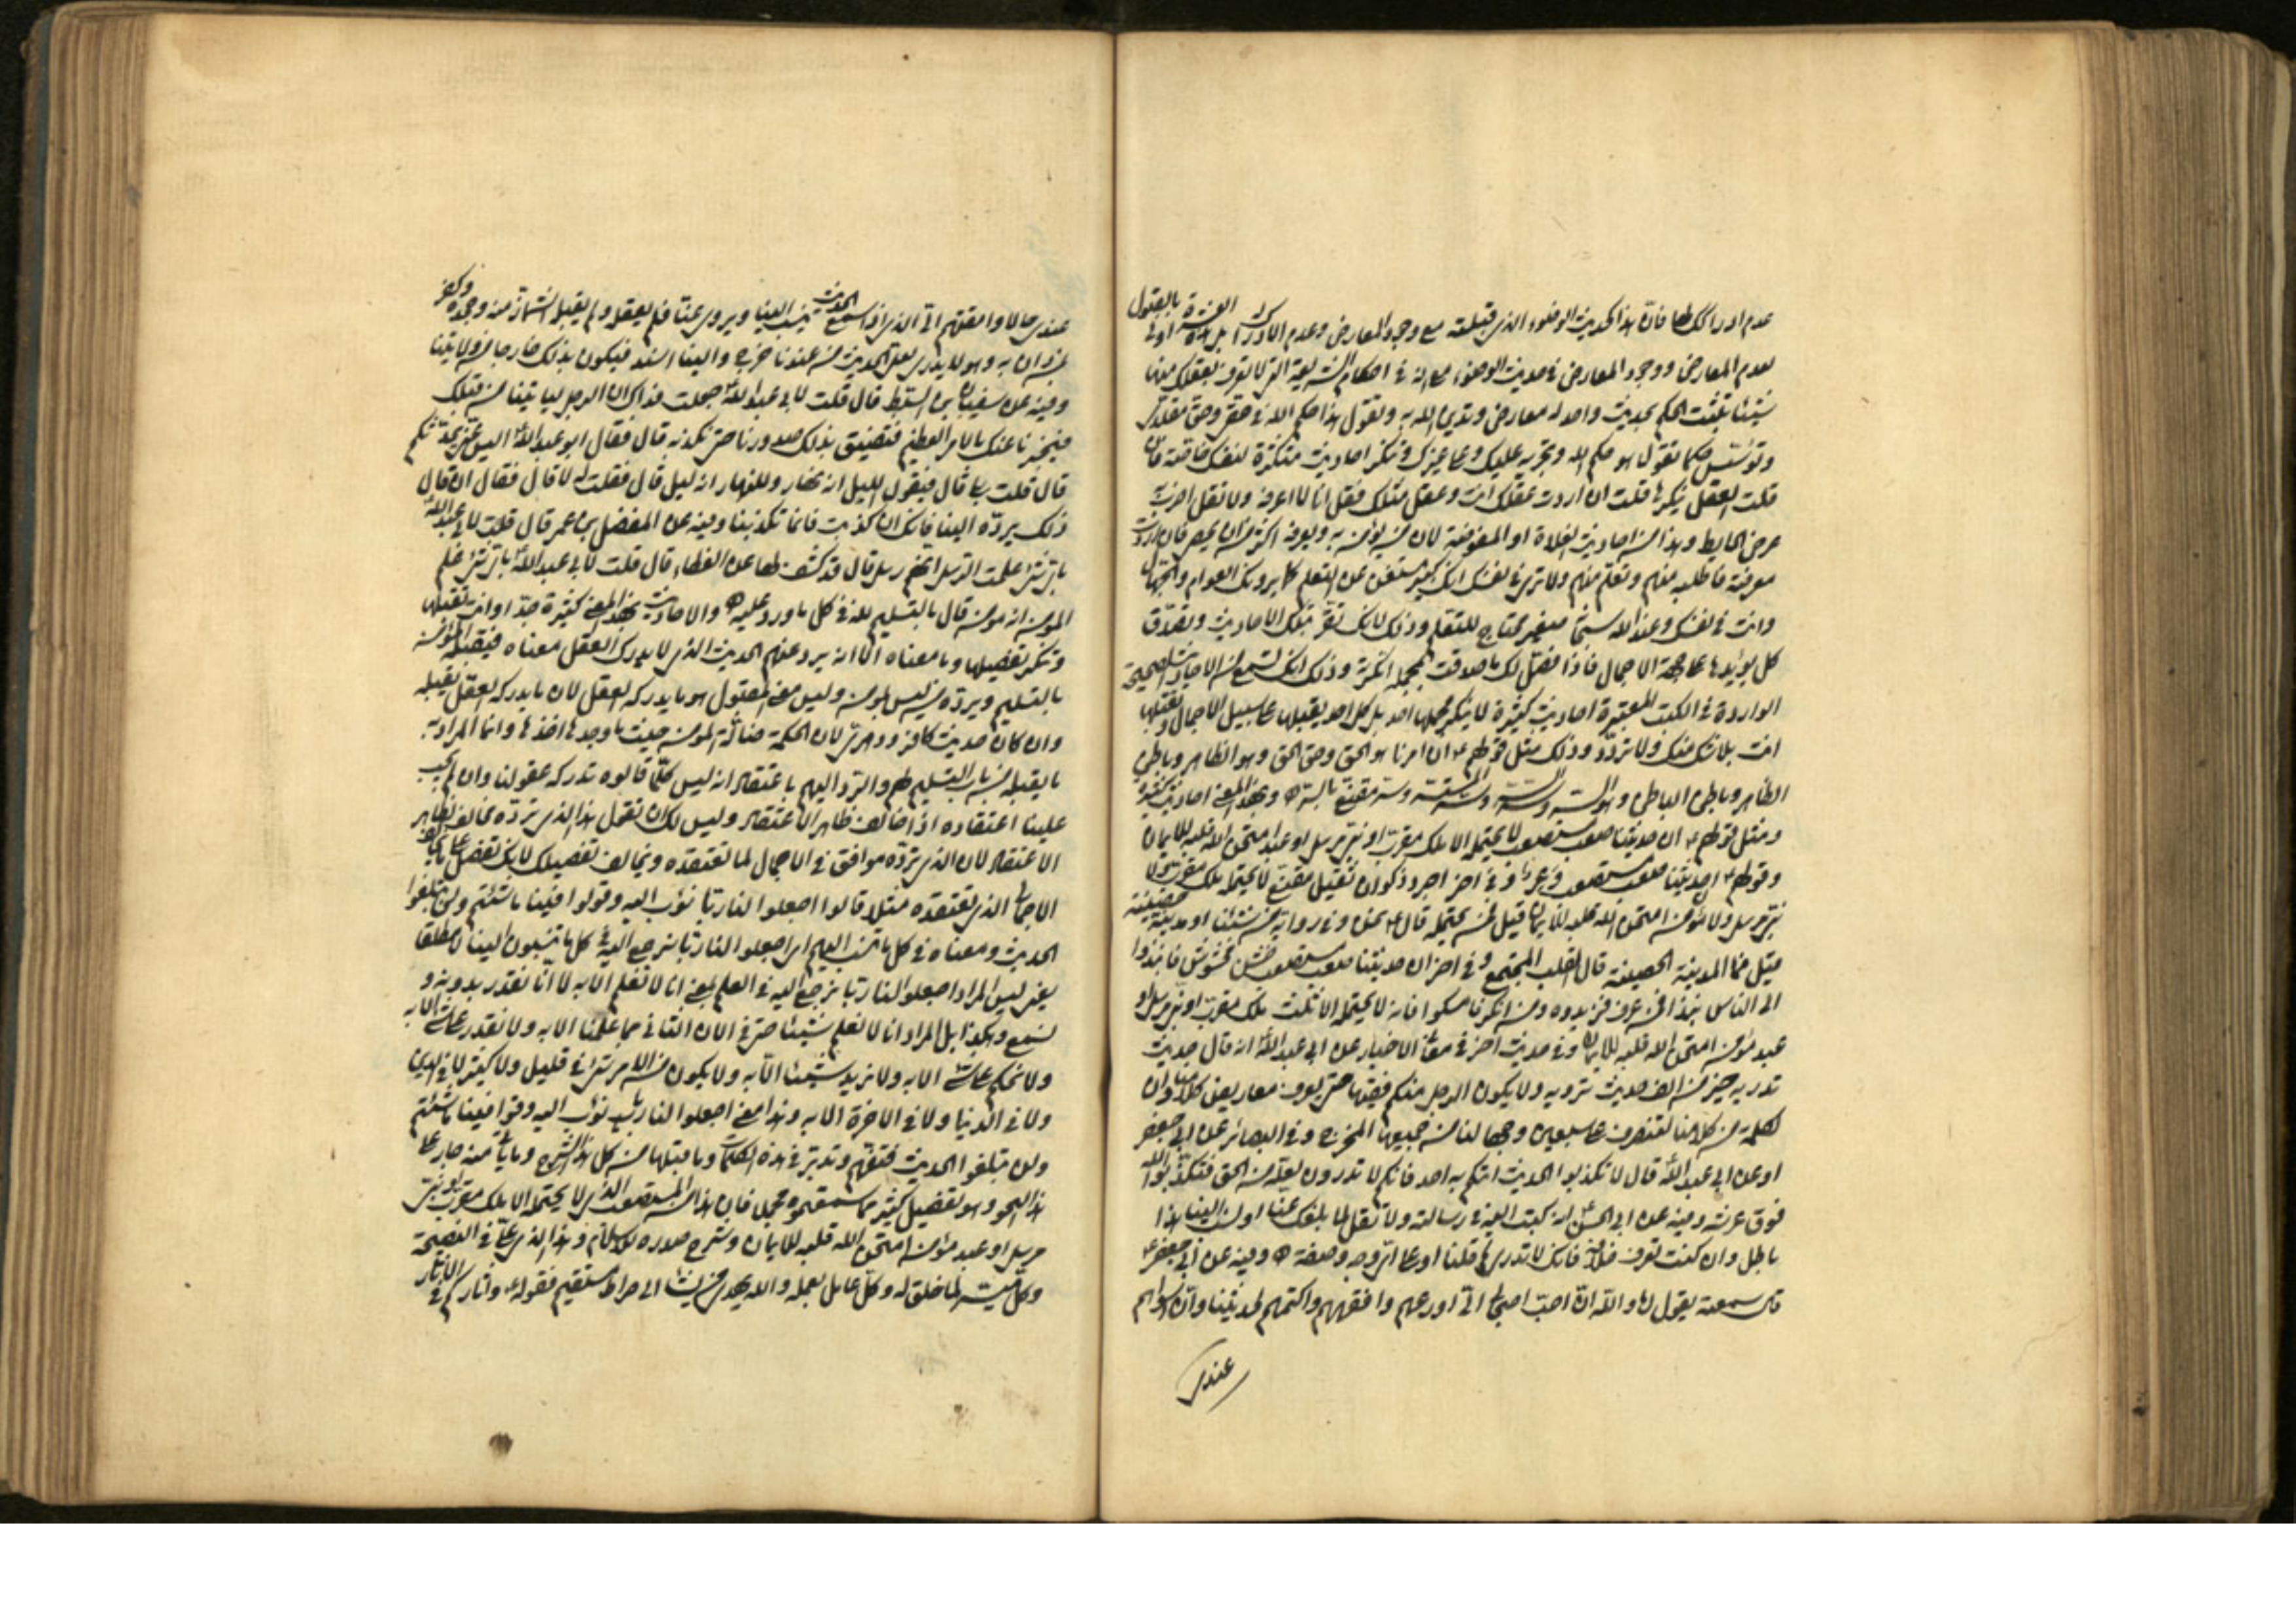 عدم ادراكك لها فان هذا الحديث الوضوء الذي قبلته مع وجود المعارض وعدم الادراك بل هذه العشرة اولى بالقبول
لعدم المعارض ووجود المعارض في حديث الوضوء مع انه في احكام الشريعة التي لا تعرف بعقلك منها
شيئا تثبت الحكم بحديث واحد له معارض وتدين الله به وتقول هذا حكم الله في حقي وحق مقلدي
هو حكم الله وتجريه عليك وعلى غيرك وتنكر احاديث متكثرة لنفسك خاصة فان
قلت العقل ينكرها قلت ان اردت عقلك انت وعقل مثلك فقل انا لا اعرف ولا تقل اضرب
عرض الحايط وهذا من احاديث الغلاة او المفوضة لان من يؤمن به ويعرفه اكثر من ان يحصى فان اردت
معرفته فاطلبه منهم وتعلم منهم ولا ترى في نفسك انك كبير مستغن عن التعلم كما يرونك العوام والجهال
وانت في نفسك وعند الله سبحانه صغير محتاج للتعلم وذلك لانك تقر بتلك الاحاديث وتصدق
كل يؤيدها على جهة الاجمال فاذا فصل لك ما صدقت بمجمله انكرته وذلك انك تسمع من الاحاديث الصحيحة
الواردة في الكتب المعتبرة احاديث كثيرة لا ينكر مجملها احد بل كل احد يقبلها على سبيل الاجمال وتقبلها
انت بلا شك منك ولا تردد وذلك مثل قولهم ع ان امرنا هو الحق وحق الحق وهو الظاهر وباطن
الظاهر وباطن الباطن وهو السر وسر السر وسر المستسر وسر مقنع بالسر ه وبهذا المعنى احاديث كثيرة
ومثل قولهم ع ان حديثنا صعب مستصعب لا يحتمله الا ملك مقرب او نبي مرسل او عبد امتحن الله قلبه للايمان
وقولهم ع ان حديثنا صعب مستصعب وعر وفي اخر اجرد ذكوان ثقيل مقنع لا يحتمله ملك مقرب ولا
نبي مرسل ولا مؤمن امتحن الله قلبه للايمان قيل فمن يحتمله قال ع نحن وفي رواية من شئنا او مدينة حصينة
قيل فما المدينة الحصينة قال القلب المجتمع وفي اخر ان حديثنا صعب مستصعب خشن مخشوش فانبذوا
الى الناس نبذا فمن عرف فزيدوه ومن انكر فامسكوا فانه لا يحتمله الا ثلث ملك مقرب او نبي مرسل او
عبد مؤمن امتحن الله قلبه للايمان وفي حديث اخر في معاني الاخبار عن ابي عبد الله ع انه قال حديث
تدريه خير من الف حديث ترويه ولا يكون الرجل منكم فقيها حتى يعرف معاريض كلامنا وان
الكلمة من كلامنا لتنصرف على سبعين وجها لنا من جميعها المخرج وفي البصائر عن ابي جعفر
او عن ابي عبد الله ع قال لا تكذبوا الحديث اتاكم به احد فانكم لا تدرون لعله من الحق فتكذبوا الله
فوق عرشه وفيه عن ابي الحسن ع انه كتب اليه في رسالته ولا تقل لما بلغك عنا او نسب الينا هذا
باطل وان كنت تعرف خلافه فانك لا تدري لم قلنا او على اي وجه وصفه ه وفيه عن ابي جعفر ع
قال سمعته يقول اما والله ان احب اصحابي الي اورعهم وافقههم واكتمهم لحديثنا وان اسواهم
عندي
عندي حالا وامقتهم الي الذي اذا سمع الحديث ينسب الينا ويروى عنا فلم يعقله ولم يقبله اشمأز منه وجحده وكفر
لمن دان به وهو لا يدري لعل الحديث من عندنا خرج والينا اسند فيكون بذلك خارجا من ولايتنا
وفيه عن سفيان بن السمط قال قلت لابي عبد الله ع جعلت فداك ان الرجل لياتينا من قبلك
فيخبرنا عنك بالامر العظيم فتضيق بذلك صدورنا حتى نكذبه قال فقال ابو عبد الله ع اليس عني يحدثكم
قال قلت بلى قال فيقول لليل انه نهار وللنهار انه ليل قال فقلت له لا قال فقال
ذلك يرده الينا فانك ان كذبت فانما تكذبنا وفيه عن المفضل بن عمر قال قلت لابي عبد الله ع
باي شيء علمت الرسل انهم رسل قال قد كشف لها عن الغطاء قال قلت لابي عبد الله ع باي شيء علم
المؤمن انه مؤمن قال بالتسليم لله في كل ما ورد عليه ه والاحاديث بهذا المعنى كثيرة جدا وانت تقبلها
وتنكر تفصيلها وما معناه الا انه يرد عنهم الحديث الذي لا يدرك العقل معناه فيقبله المؤمن
بالتسليم ويرده من ليس بمؤمن وليس معنى المقبول هو ما يدركه العقل لان ما يدركه العقل يقبله
وان كان حديث كافر ودهري لان الحكمة ضالة المؤمن حيث ما وجدها اخذها وانما المراد به
ما يقبله من باب التسليم لهم والرد اليهم باعتقاد انه ليس كلما قالوه تدركه عقولنا وان لم يجب
علينا اعتقاده اذا خالف ظاهر الاعتقاد وليس لك ان تقول هذا الذي نرده مخالف لظاهر
الاعتقاد لان الذي ترده موافق في الاجمال لما تعتقده ويخالف تفصيلك لانك تفصل على ما يخالف
الاجمال الذي تعتقده مثلا قالوا اجعلوا لنا ربا نؤب اليه وقولوا فينا ما شئتم ولن تبلغوا
الحديث ومعناه في كل ما تنسب اليهم اي اجعلوا لنا ربا نرجع اليه في كل ما تنسبون الينا مطلقا
يعني ليس المراد اجعلوا لنا ربا نرجع اليه في العلم بمعنى انا لا نعلم الا به لا انا نقدر بدونه و
نسمع وهكذا بل المراد انا لا نعلم شيئا حتى في الان الثاني مما علمنا الا به ولا نقدر على شيء الا به
ولا نحكم على شيء الا به ولا نريد شيئا الا به ولا يكون من الامر شيء في قليل ولا كثير لا في الدين
ولا في الدنيا ولا في الاخرة الا به وهذا معنى اجعلوا لنا ربا نؤب اليه وقولوا فينا ما شئتم
ولن تبلغوا الحديث فتفهم وتدبر في هذه الكلمات وما قبلها من كل هذا الشرح وما ياتي منه جار على
هذا النحو وهو تفصيل كثير مما سمعتموه مجملا فان هذا من المستصعب الذي لا يحتمله الا ملك مقرب او نبي
مرسل او عبد مؤمن امتحن الله قلبه للايمان وشرح صدره للاسلام وهذا الذي علي في النصيحة
وكل ميسر لما خلق له وكل عامل بعمله والله يهدي من يشاء الى صراط مستقيم فقوله ع واثاركم في الاثار